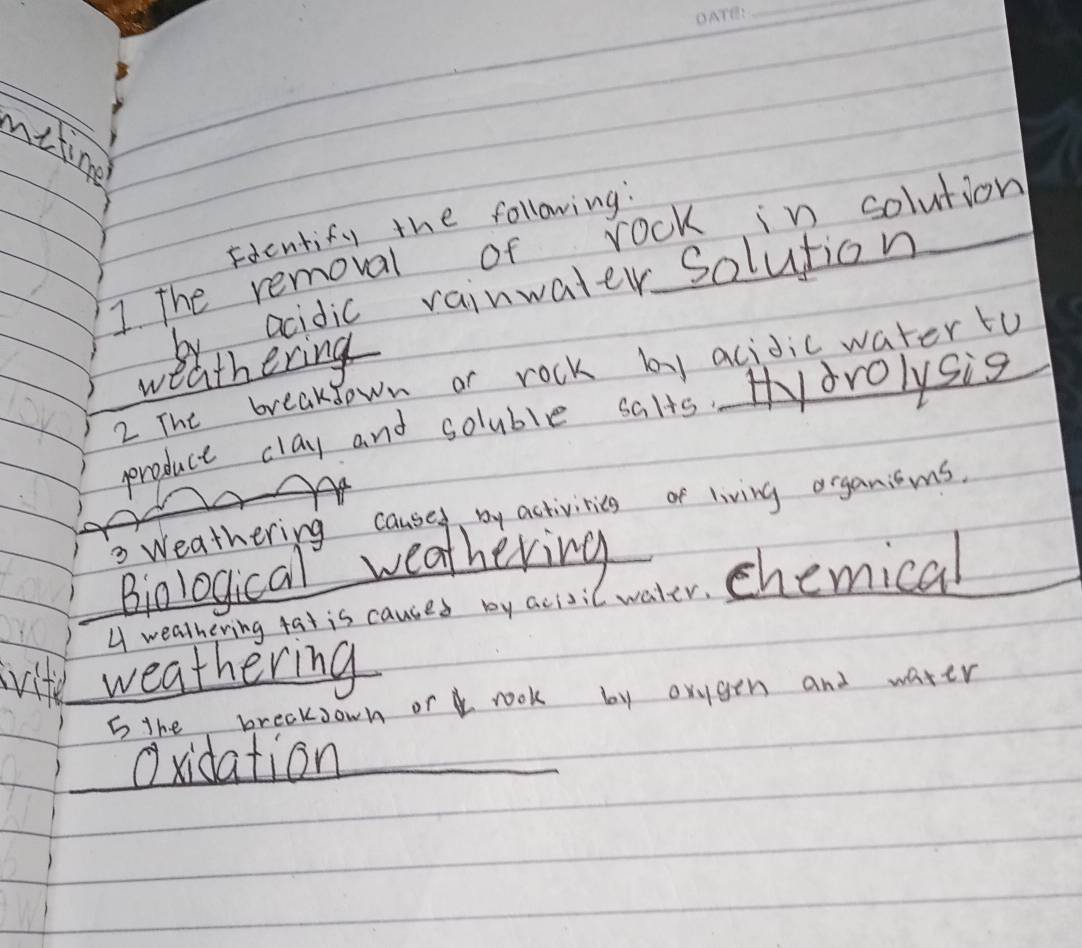 DATE:
metimes
Identify the following:
1. The removal of rock in solution
by acidic rainwater Solution
weathering
2 The breakdown or rock by acidic water to
produce clay and soluble salts. Hydrolysis
3 Weathering caused by activities of living organisms.
Biological weathering
4 weathering tat is caused by acidic water. chemical
weathering
5 the breckdown or rook by oxygen and water
Oxidation